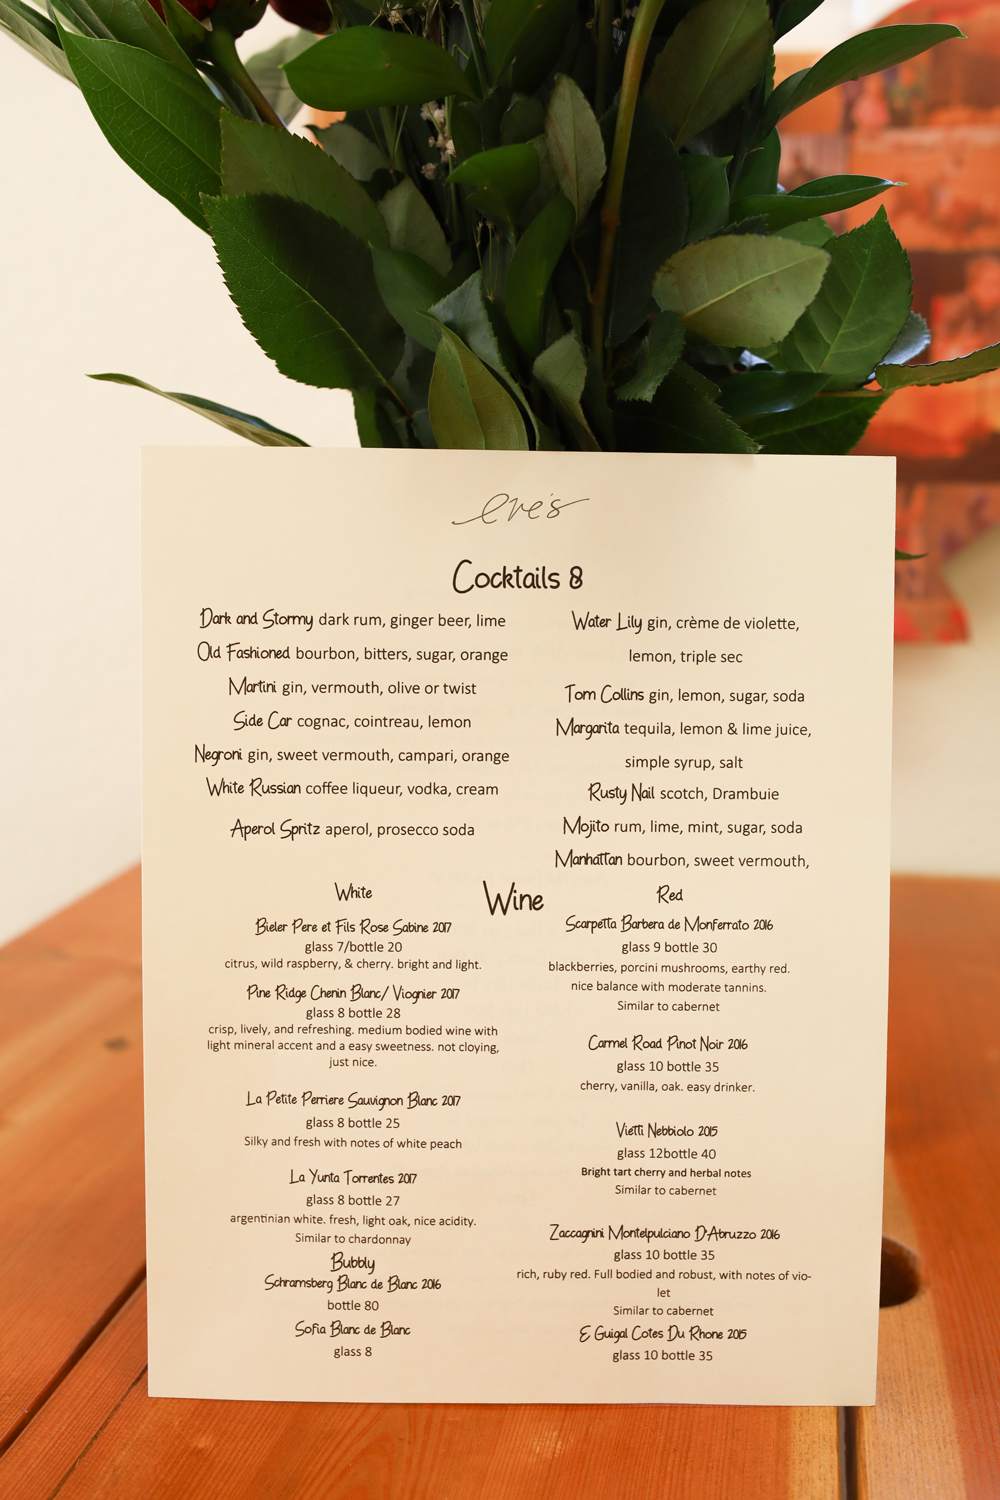 eve's
Cocktails 8
Dark and Stormy dark rum, ginger beer, lime
Old Fashioned bourbon, bitters, sugar, orange
Martini gin, vermouth, olive or twist
Side Car cognac, cointreau, lemon
Negroni gin, sweet vermouth, campari, orange
White Russian coffee liqueur, vodka, cream
Aperol Spritz aperol, prosecco soda
Water Lily gin, crème de violette,
lemon, triple sec
Tom Collins gin, lemon, sugar, soda
Margarita tequila, lemon & lime juice,
simple syrup, salt
Rusty Nail scotch, Drambuie
Mojito rum, lime, mint, sugar, soda
Manhattan bourbon, sweet vermouth,
Wine
White
Bieler Pere et Fils Rose Sabine 2017
glass 7/bottle 20
citrus, wild raspberry, & cherry. bright and light.
Pine Ridge Chenin Blanc/ Viognier 2017
glass 8 bottle 28
crisp, lively, and refreshing. medium bodied wine with
light mineral accent and a easy sweetness. not cloying,
just nice.
La Petite Perriere Sauvignon Blanc 2017
glass 8 bottle 25
Silky and fresh with notes of white peach
La Yunta Torrentes 2017
glass 8 bottle 27
argentinian white. fresh, light oak, nice acidity.
Similar to chardonnay
Bubbly
Schramsberg Blanc de Blanc 2016
bottle 80
Sofia Blanc de Blanc
glass 8
Red
Scarpetta Barbera de Monferrato 2016
glass 9 bottle 30
blackberries, porcini mushrooms, earthy red.
nice balance with moderate tannins.
Similar to cabernet
Carmel Road Pinot Noir 2016
glass 10 bottle 35
cherry, vanilla, oak. easy drinker.
Vietti Nebbiolo 2015
glass 12bottle 40
Bright tart cherry and herbal notes
Similar to cabernet
Zaccagnini Montelpulciano D'Abruzzo 2016
glass 10 bottle 35
rich, ruby red. Full bodied and robust, with notes of vio-
let
Similar to cabernet
E Guigal Cotes Du Rhone 2015
glass 10 bottle 35